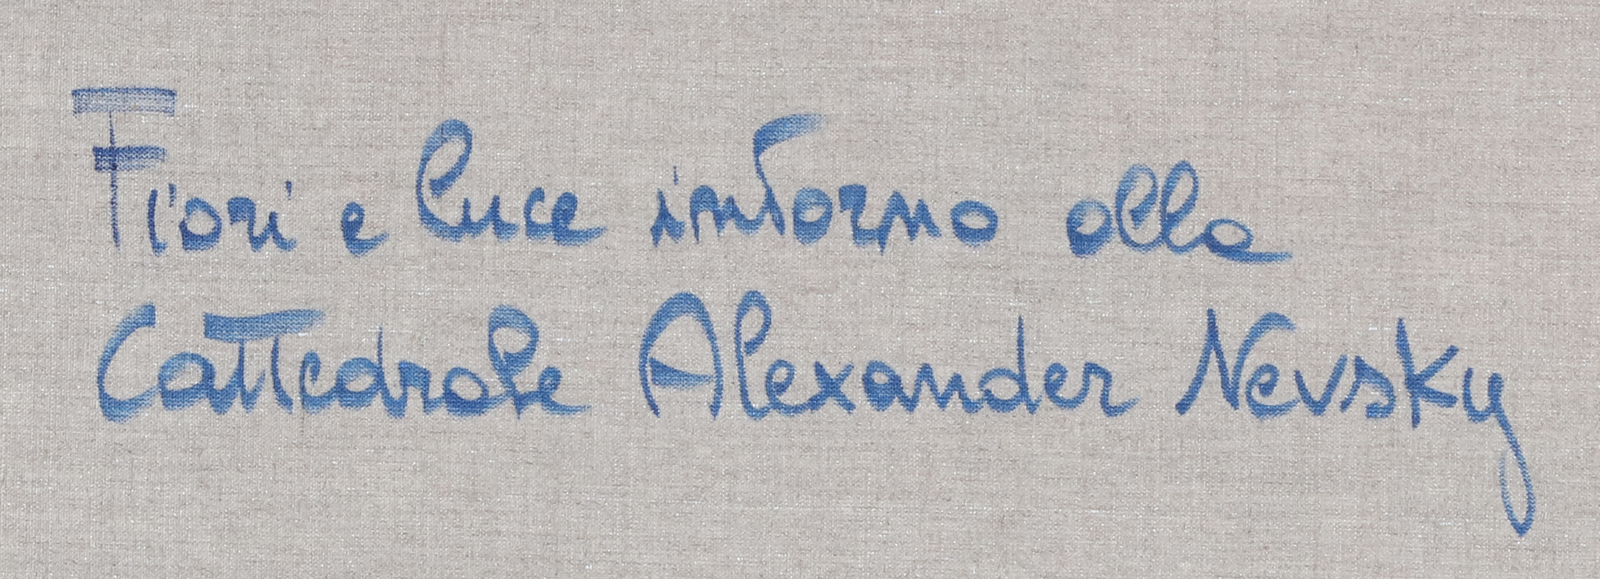 Fiori e luce intorno alla
Cattedrale Alexander Nevsky